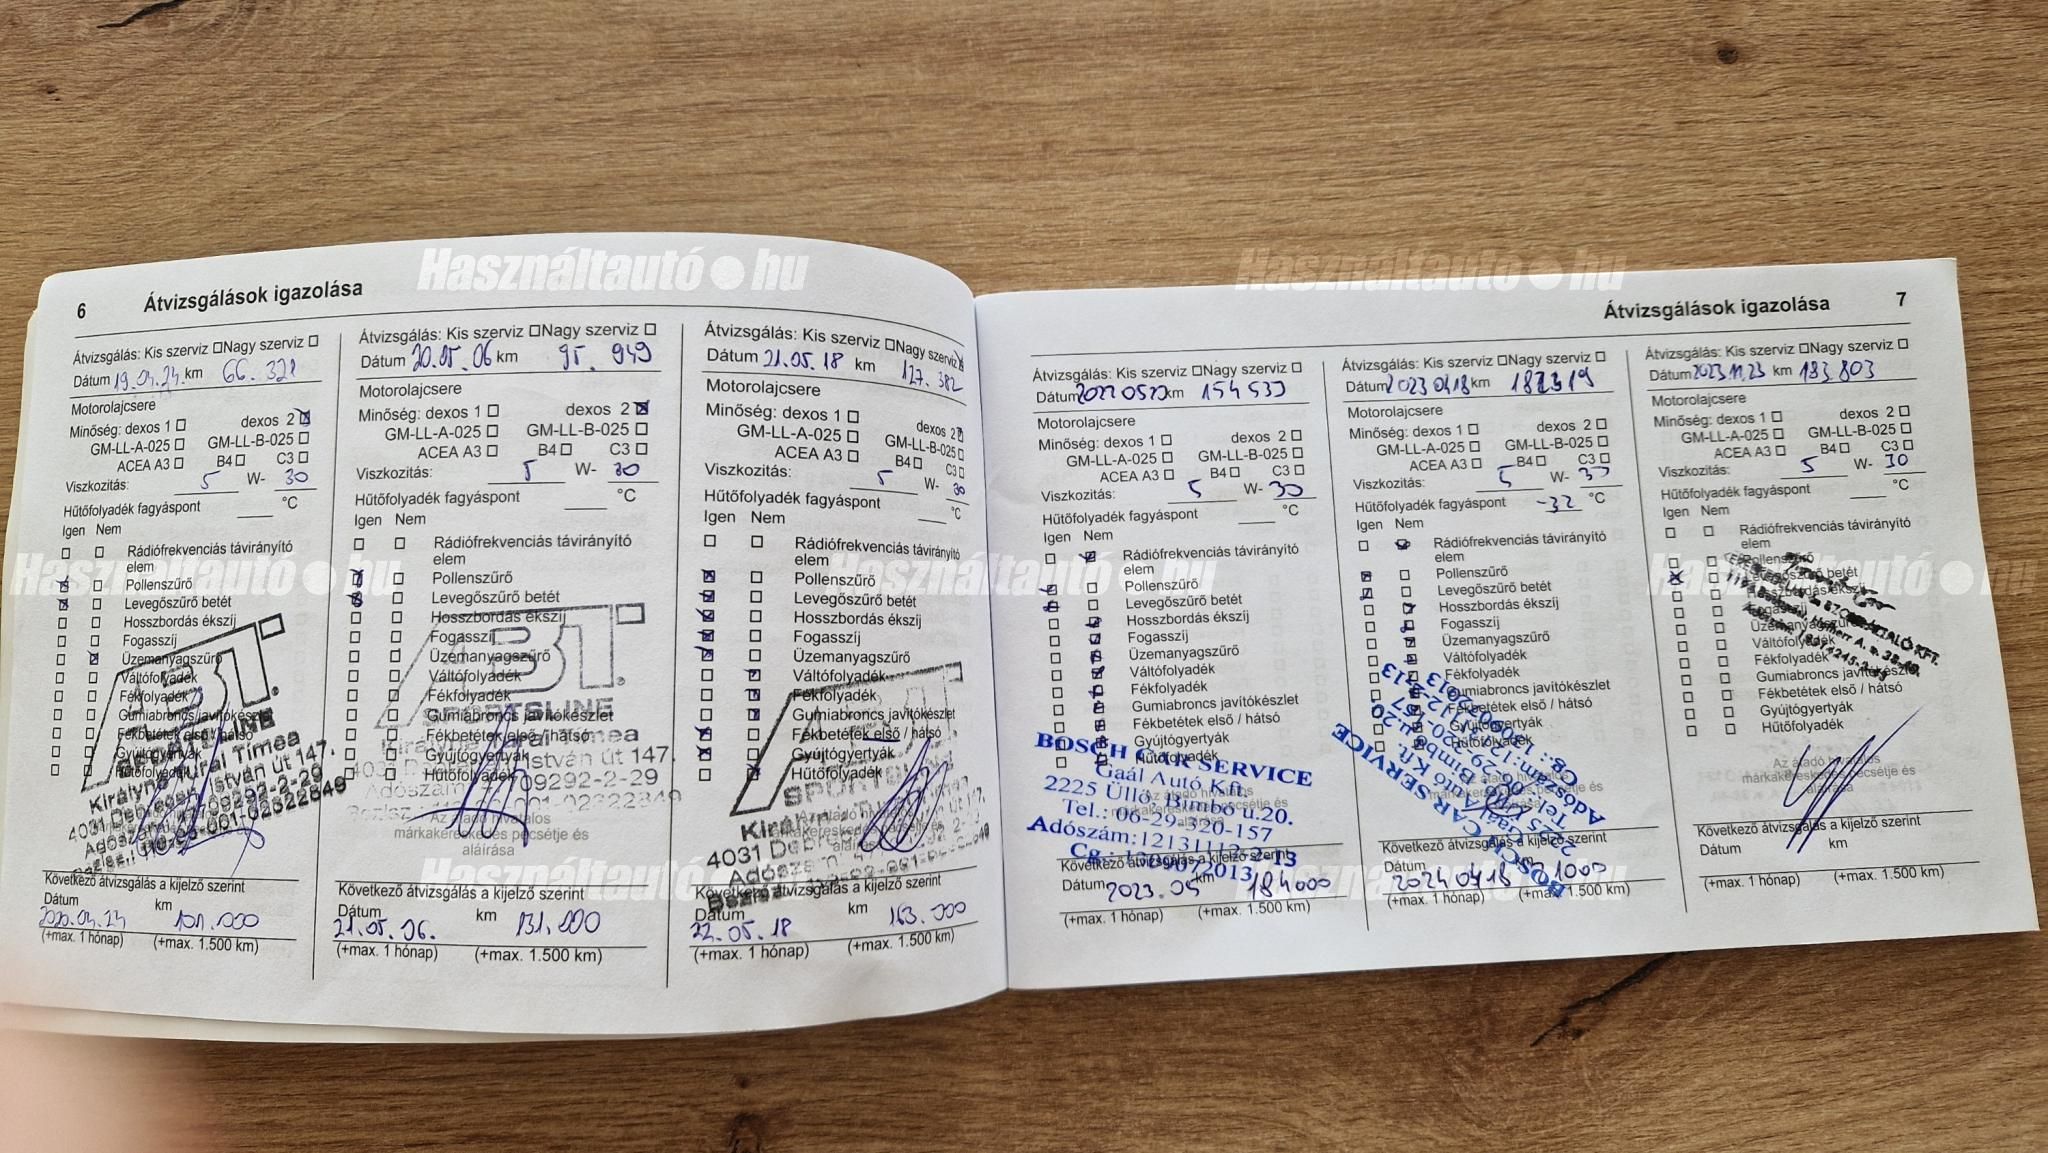 Használtautó.hu
Használtautó.hu
6 Átvizsgálások igazolása
Átvizsgálás: Kis szerviz Nagy szerviz
Dátum 19.04.24. km 66.321
Motorolajcsere
Minőség: dexos 1 dexos 2
GM-LL-A-025 GM-LL-B-025
ACEA A3 B4 C3
Viszkozitás: 5 W- 30
Hűtőfolyadék fagyáspont °C
Igen Nem
Rádiófrekvenciás távirányító
elem
Pollenszűrő
Levegőszűrő betét
Hosszbordás ékszíj
Fogasszíj
Üzemanyagszűrő
Váltófolyadék
Fékfolyadék
Gumiabroncs javítókészlet
Fékbetétek első / hátsó
Gyújtógyertyák
Hűtőfolyadék
ABT
SPORTSLINE
Királyné Karai Tímea
4031 Debrecen, István út 147.
Következő átvizsgálás a kijelző szerint
Dátum km
2020.04.24 101.000
(+max. 1 hónap) (+max. 1.500 km)
Átvizsgálás: Kis szerviz Nagy szerviz
Dátum 20.05.06 km 95.949
Motorolajcsere
Minőség: dexos 1 dexos 2
GM-LL-A-025 GM-LL-B-025
ACEA A3 B4 C3
Viszkozitás: 5 W- 30
Hűtőfolyadék fagyáspont °C
Igen Nem
Rádiófrekvenciás távirányító
elem
Pollenszűrő
Levegőszűrő betét
Hosszbordás ékszíj
Fogasszíj
Üzemanyagszűrő
Váltófolyadék
Fékfolyadék
Gumiabroncs javítókészlet
Fékbetétek első / hátsó
Gyújtógyertyák
Hűtőfolyadék
ABT
SPORTSLINE
Királyné Karai Tímea
István út 147.
Az átadó hivatalos
márkakereskedés pecsétje és
aláírása
Következő átvizsgálás a kijelző szerint
Dátum km
21.05.06. 131.000
(+max. 1 hónap) (+max. 1.500 km)
Átvizsgálás: Kis szerviz Nagy szerviz
Dátum 21.05.18 km 127.382
Motorolajcsere
Minőség: dexos 1 dexos 2
GM-LL-A-025 GM-LL-B-025
ACEA A3 B4 C3
Viszkozitás: 5 W- 30
Hűtőfolyadék fagyáspont °C
Igen Nem
Rádiófrekvenciás távirányító
elem
Pollenszűrő
Levegőszűrő betét
Hosszbordás ékszíj
Fogasszíj
Üzemanyagszűrő
Váltófolyadék
Fékfolyadék
Gumiabroncs javítókészlet
Fékbetétek első / hátsó
Gyújtógyertyák
Hűtőfolyadék
Következő átvizsgálás a kijelző szerint
Dátum km
22.05.18 163.000
(+max. 1 hónap) (+max. 1.500 km)
Átvizsgálások igazolása 7
Átvizsgálás: Kis szerviz Nagy szerviz
Dátum km 154 539
Motorolajcsere
Minőség: dexos 1 dexos 2
GM-LL-A-025 GM-LL-B-025
ACEA A3 B4 C3
Viszkozitás: 5 W- 30
Hűtőfolyadék fagyáspont °C
Igen Nem
Rádiófrekvenciás távirányító
elem
Pollenszűrő
Levegőszűrő betét
Hosszbordás ékszíj
Fogasszíj
Üzemanyagszűrő
Váltófolyadék
Fékfolyadék
Gumiabroncs javítókészlet
Fékbetétek első / hátsó
Gyújtógyertyák
Hűtőfolyadék
BOSCH CAR SERVICE
Gaál Autó Kft.
2225 Üllő, Bimbó u.20.
Tel.: 06-29-320-157
Adószám:12131112-2-13
Következő átvizsgálás a kijelző szerint
Dátum km
2023.05 184000
(+max. 1 hónap) (+max. 1.500 km)
Átvizsgálás: Kis szerviz Nagy szerviz
Dátum 2023 04 18 km
Motorolajcsere
Minőség: dexos 1 dexos 2
GM-LL-A-025 GM-LL-B-025
ACEA A3 B4 C3
Viszkozitás: 5 W- 30
Hűtőfolyadék fagyáspont -32 °C
Igen Nem
Rádiófrekvenciás távirányító
elem
Pollenszűrő
Levegőszűrő betét
Hosszbordás ékszíj
Fogasszíj
Üzemanyagszűrő
Váltófolyadék
Fékfolyadék
Gumiabroncs javítókészlet
Fékbetétek első / hátsó
Gyújtógyertyák
Hűtőfolyadék
BOSCH CAR SERVICE
Következő átvizsgálás a kijelző szerint
Dátum km
2024 04 18
(+max. 1 hónap) (+max. 1.500 km)
Átvizsgálás: Kis szerviz Nagy szerviz
Dátum 2023.11.23 km 183.803
Motorolajcsere
Minőség: dexos 1 dexos 2
GM-LL-A-025 GM-LL-B-025
ACEA A3 B4 C3
Viszkozitás: 5 W- 30
Hűtőfolyadék fagyáspont °C
Igen Nem
Rádiófrekvenciás távirányító
elem
Pollenszűrő
Levegőszűrő betét
Hosszbordás ékszíj
Fogasszíj
Üzemanyagszűrő
Váltófolyadék
Fékfolyadék
Gumiabroncs javítókészlet
Fékbetétek első / hátsó
Gyújtógyertyák
Hűtőfolyadék
Az átadó hivatalos
márkakereskedés pecsétje és
aláírása
Következő átvizsgálás a kijelző szerint
Dátum km
(+max. 1 hónap) (+max. 1.500 km)
Használtautó.hu
Használtautó.hu
Használtautó.hu
Használtautó.hu
Használtautó.hu